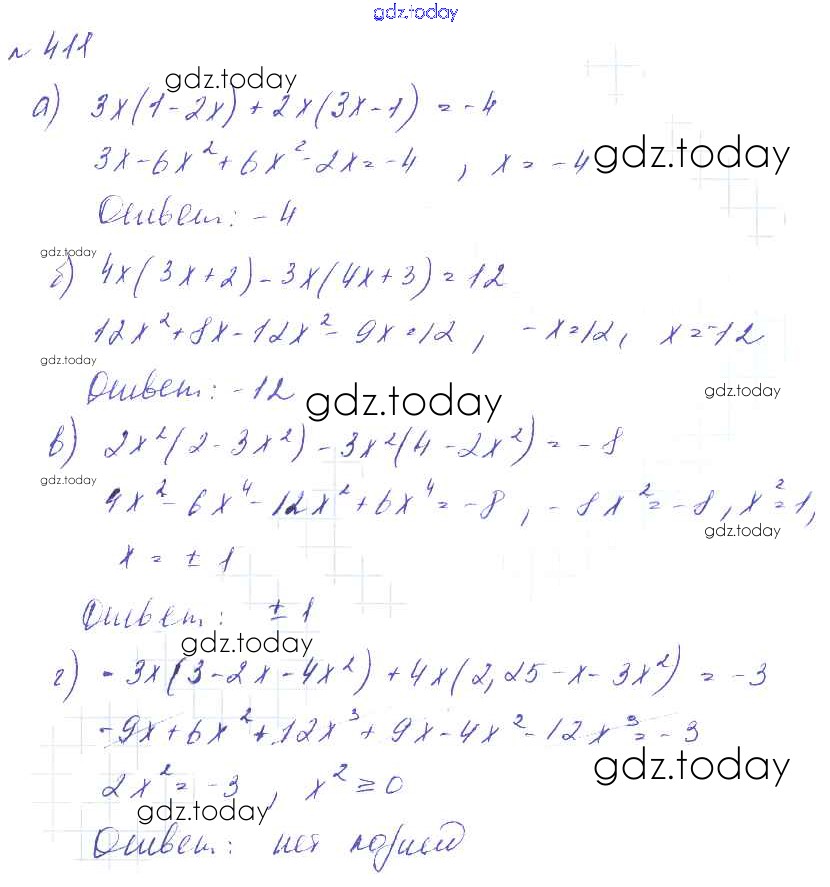 gdz.today
№ 411
gdz.today
а) 3x(1-2x)+2x(3x-1)=-4
3x-6x²+6x²-2x=-4 , x=-4 gdz.today
Ответ: -4
gdz.today
б) 4x(3x+2)-3x(4x+3)=12
12x²+8x-12x²-9x=12, -x=12, x=-12
gdz.today
Ответ: -12 gdz.today gdz.today
в) 2x²(2-3x²)-3x²(4-2x²)=-8
gdz.today
4x²-6x⁴-12x²+6x⁴=-8, -8x²=-8, x²=1,
gdz.today
x=±1
Ответ: ±1
gdz.today
г) -3x(3-2x-4x²)+4x(2,25-x-3x²)=-3
-9x+6x²+12x³+9x-4x²-12x³=-3
gdz.today
2x²=-3, x²≥0
gdz.today
Ответ: нет корней